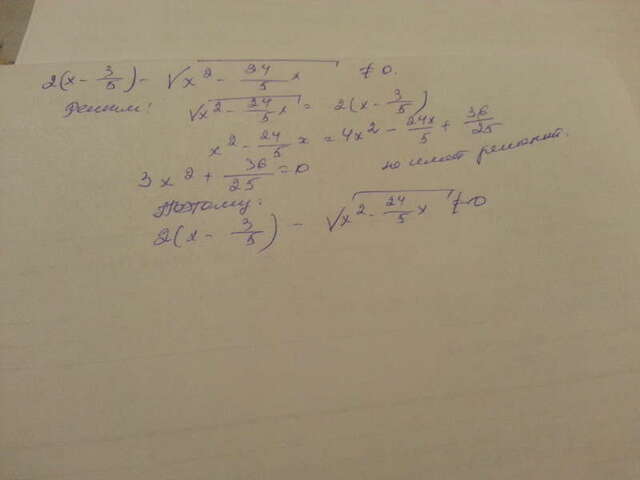 2(x - 3/5) - √(x² - 24/5 x) ≠ 0.
Решим: √(x² - 24/5 x) = 2(x - 3/5)
x² - 24/5 x = 4x² - 24x/5 + 36/25
3x² + 36/25 = 0 не имеет решений.
Поэтому:
2(x - 3/5) - √(x² - 24/5 x) ≠ 0